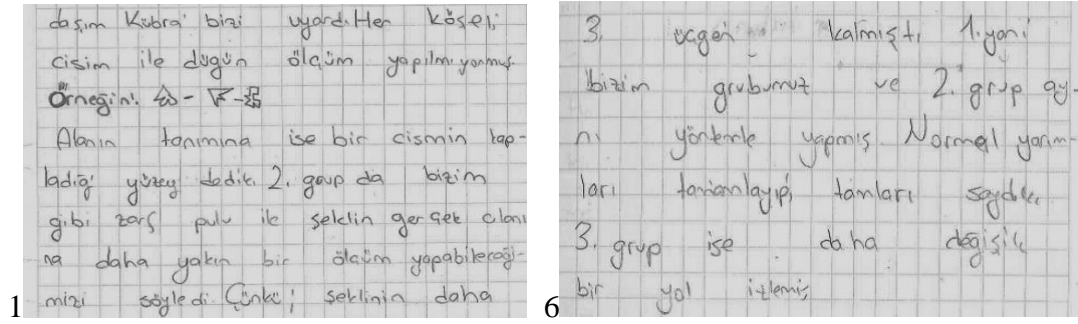 daşım Kübra' bizi uyardı. Her köşeli
cisim ile düzgün ölçüm yapılmıyormuş.
Örneğin:
Alanın tanımına ise bir cismin kap-
ladığı yüzey dedik. 2. grup da bizim
gibi zarf pulu ile şeklin gerçek alanı
na daha yakın bir ölçüm yapabileceği-
mizi söyledi Çünkü; şeklinin daha
1
3. üçgen kalmıştı 1. yani
bizim grubumuz ve 2. grup ay-
nı yöntemle yapmış. Normal yarım-
ları tamamlayıp, tamları saydık.
3. grup ise daha değişik
bir yol izlemiş
6